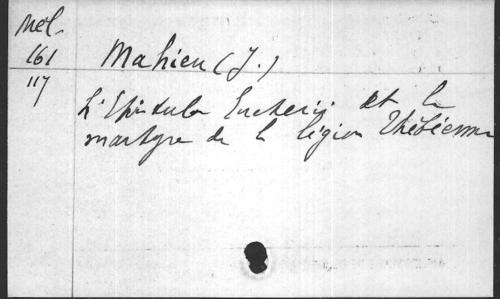 Mél.
161
117
Mahieu (J.)
L'Epistula Eucherii et le
martyre de la légion thébéenne